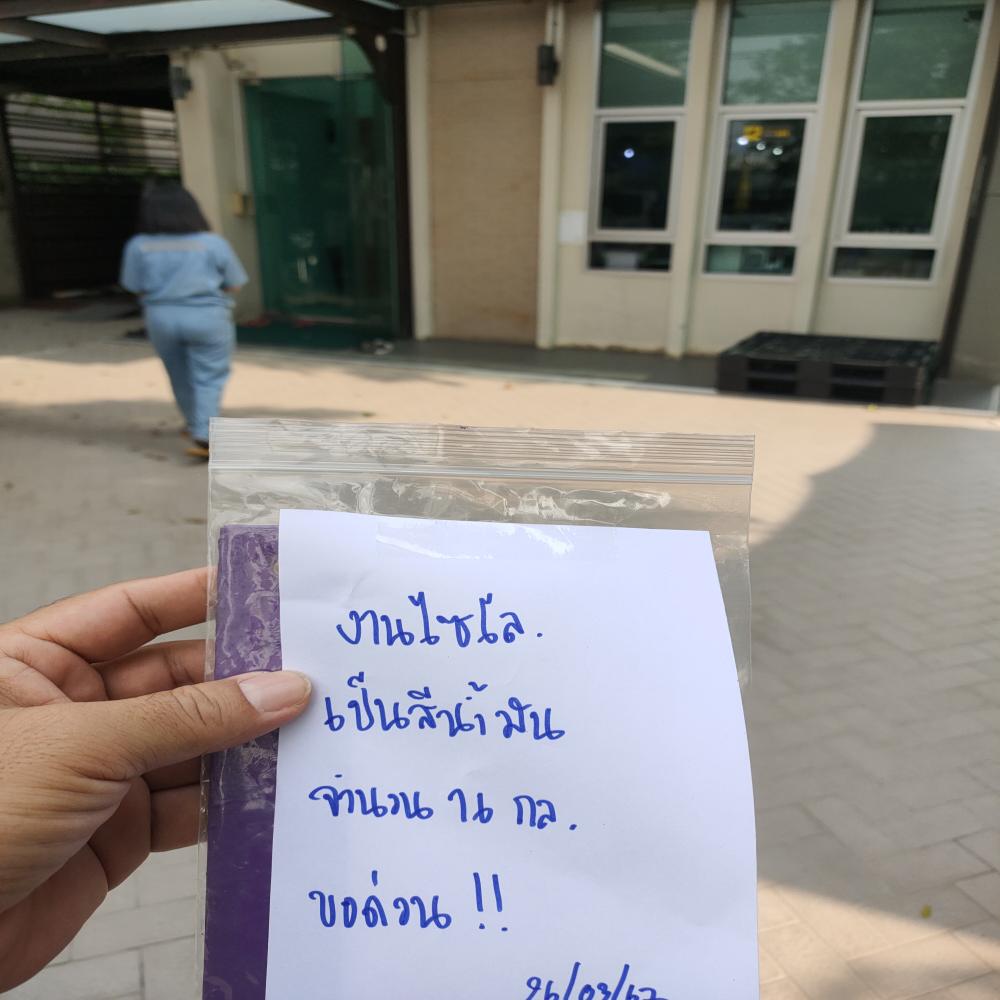 งานไซโล.
เป็นสีน้ำมัน
จำนวน 1น กล.
ขอด่วน !!
26/03/67